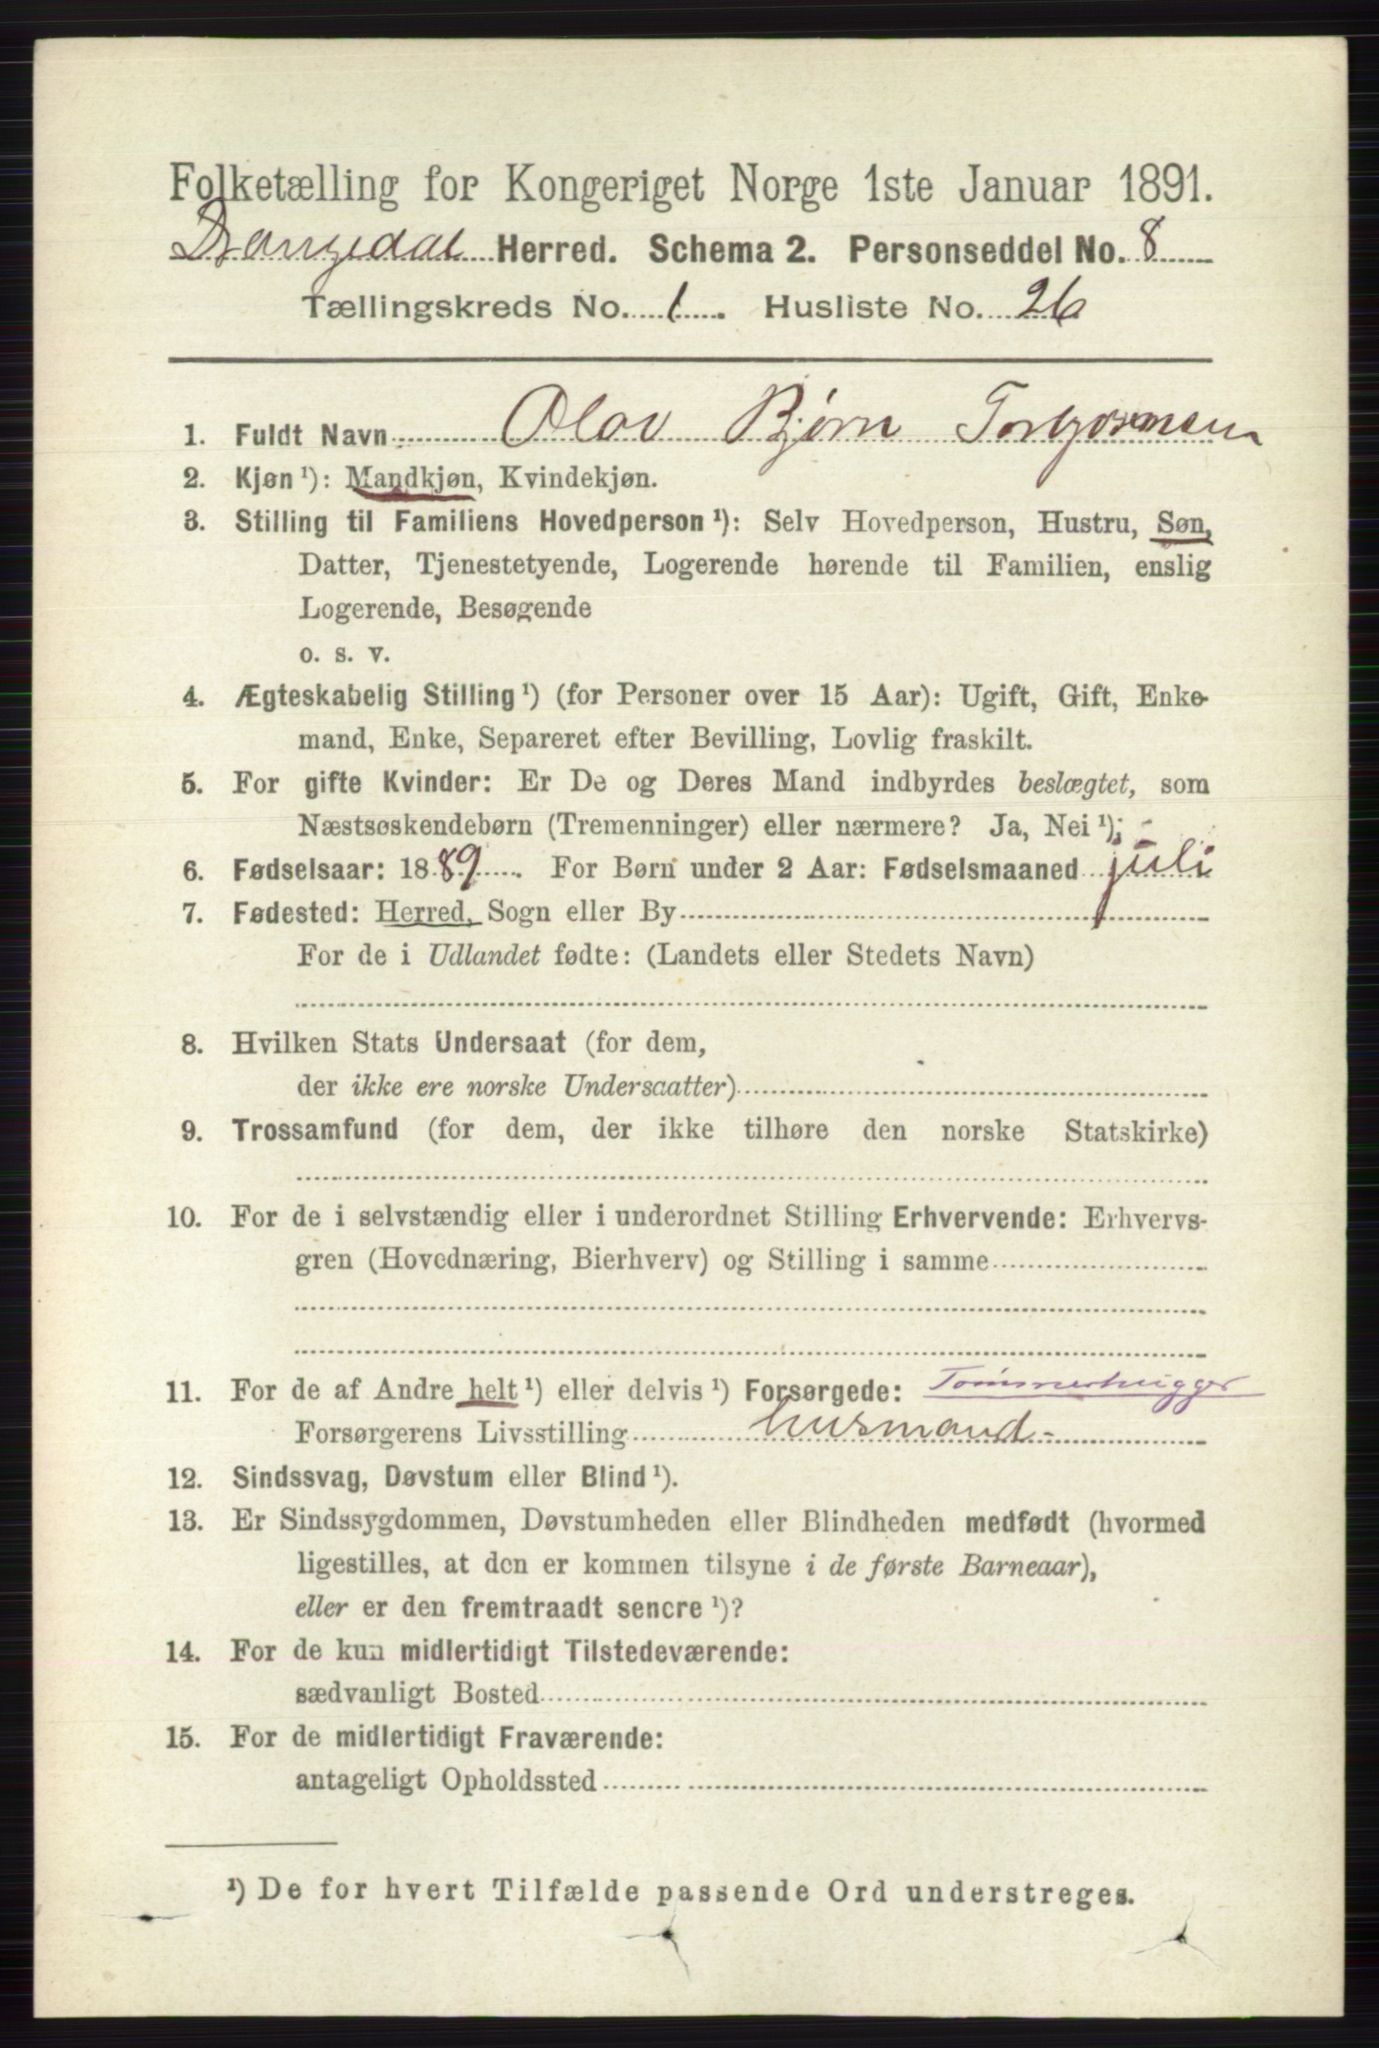 Folketælling for Kongeriget Norge 1ste Januar 1891.
Drangedal Herred. Schema 2. Personseddel No. 8
Tællingskreds No. 1. Husliste No. 26
1. Fuldt Navn Olav Bjørn Torbjørnsen
2. Kjøn ¹): Mandkjøn, Kvindekjøn.
3. Stilling til Familiens Hovedperson ¹): Selv Hovedperson, Hustru, Søn,
Datter, Tjenestetyende, Logerende hørende til Familien, enslig
Logerende, Besøgende
o. s. v.
4. Ægteskabelig Stilling ¹) (for Personer over 15 Aar): Ugift, Gift, Enke-
mand, Enke, Separeret efter Bevilling, Lovlig fraskilt.
5. For gifte Kvinder: Er De og Deres Mand indbyrdes beslægtet, som
Næstsøskendebørn (Tremenninger) eller nærmere? Ja, Nei ¹);
6. Fødselsaar: 1889. For Børn under 2 Aar: Fødselsmaaned juli
7. Fødested: Herred, Sogn eller By
For de i Udlandet fødte: (Landets eller Stedets Navn)
8. Hvilken Stats Undersaat (for dem,
der ikke ere norske Undersaatter)
9. Trossamfund (for dem, der ikke tilhøre den norske Statskirke)
10. For de i selvstændig eller i underordnet Stilling Erhvervende: Erhvervs-
gren (Hovednæring, Bierhverv) og Stilling i samme
11. For de af Andre helt ¹) eller delvis ¹) Forsørgede: Tømmerhugger
Forsørgerens Livsstilling husmand
12. Sindssvag, Døvstum eller Blind ¹).
13. Er Sindssygdommen, Døvstumheden eller Blindheden medfødt (hvormed
ligestilles, at den er kommen tilsyne i de første Barneaar),
eller er den fremtraadt senere ¹)?
14. For de kun midlertidigt Tilstedeværende:
sædvanligt Bosted
15. For de midlertidigt Fraværende:
antageligt Opholdssted
¹) De for hvert Tilfælde passende Ord understreges.